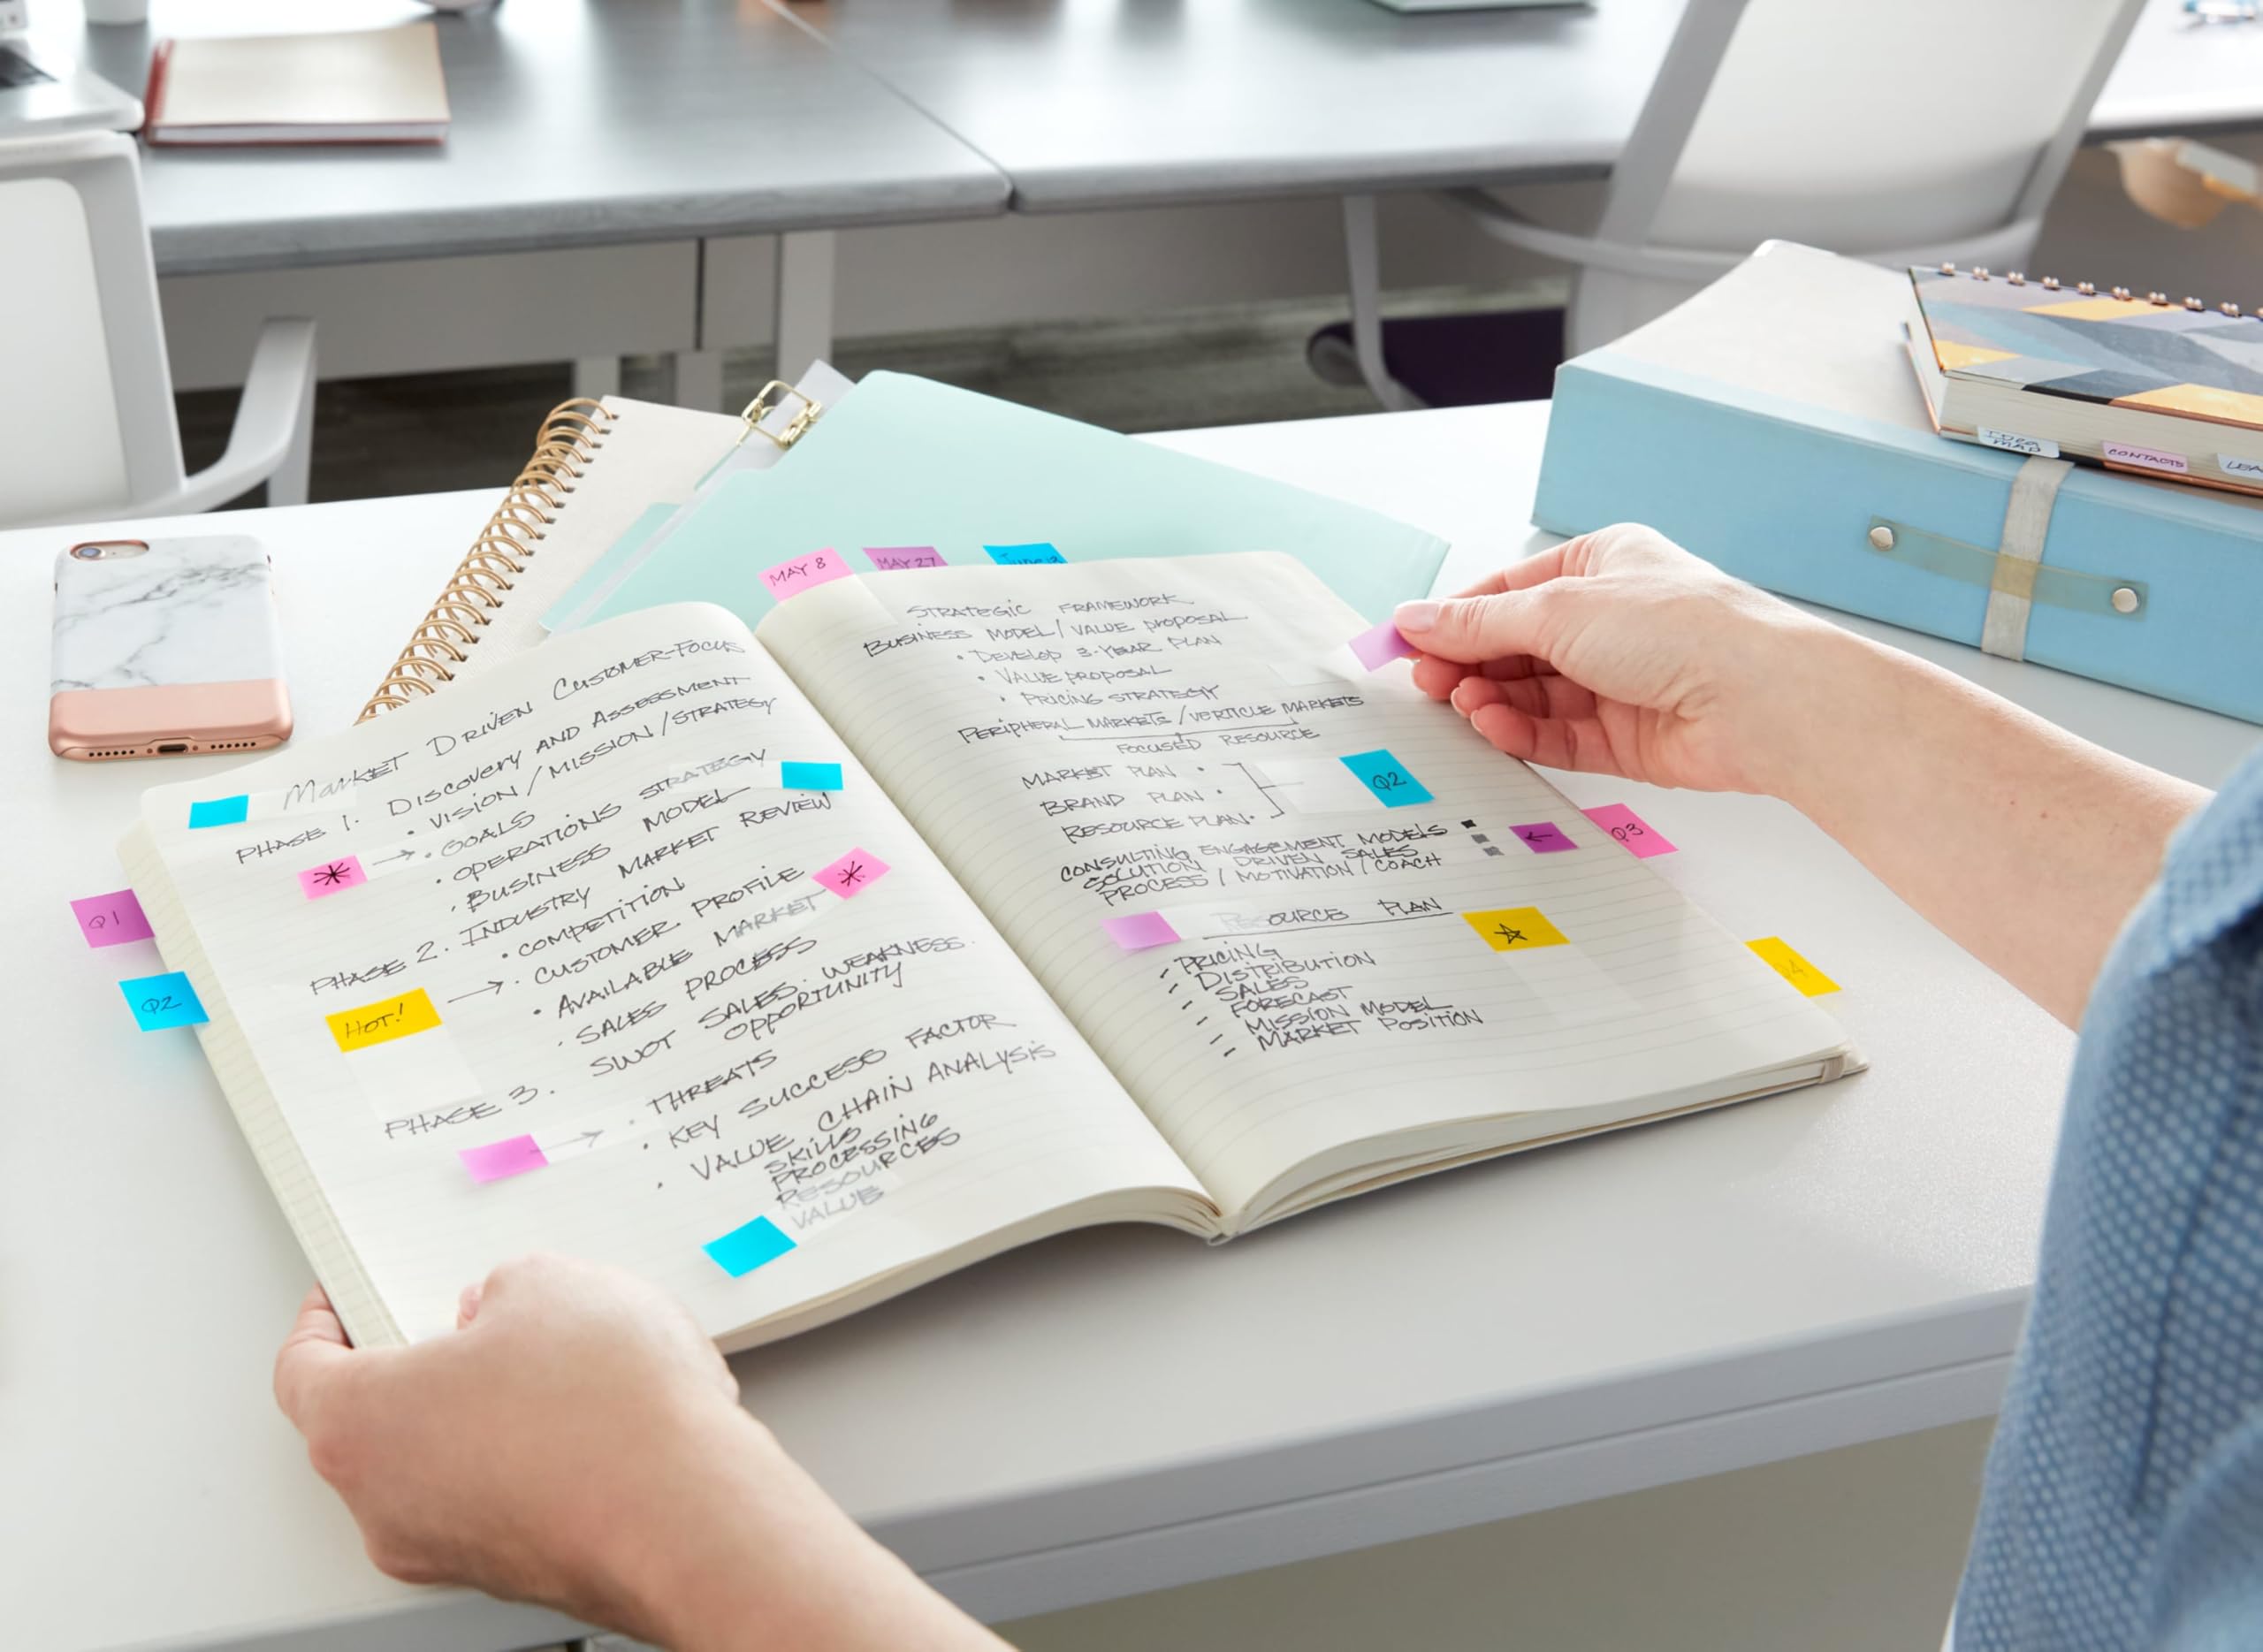 MAY 8
MAY 27
Market Driven Customer-Focus
PHASE 1. Discovery and Assessment
• VISION / MISSION / STRATEGY
* → • GOALS
• OPERATIONS STRATEGY
• BUSINESS MODEL
PHASE 2. INDUSTRY MARKET REVIEW
• COMPETITION
HOT! → • CUSTOMER PROFILE *
• AVAILABLE MARKET
• SALES PROCESS
PHASE 3. SWOT SALES. WEAKNESS.
OPPORTUNITY
→ • THREATS
• KEY SUCCESS FACTOR
• VALUE CHAIN ANALYSIS
SKILLS
PROCESSING
RESOURCES
VALUE
Q1
Q2
STRATEGIC FRAMEWORK
BUSINESS MODEL / VALUE PROPOSAL
• DEVELOP 3-YEAR PLAN
• VALUE PROPOSAL
• PRICING STRATEGY
PERIPHERAL MARKETS / VERTICLE MARKETS
FOCUSED RESOURCE
MARKET PLAN •
BRAND PLAN •
RESOURCE PLAN •
Q2
CONSULTING ENGAGEMENT MODELS
SOLUTION DRIVEN SALES
PROCESS / MOTIVATION / COACH
←
Q3
RESOURCE PLAN
☆
- PRICING
- DISTRIBUTION
- SALES
- FORECAST
- MISSION MODEL
- MARKET POSITION
Q4
IDEA
MAP
CONTACTS